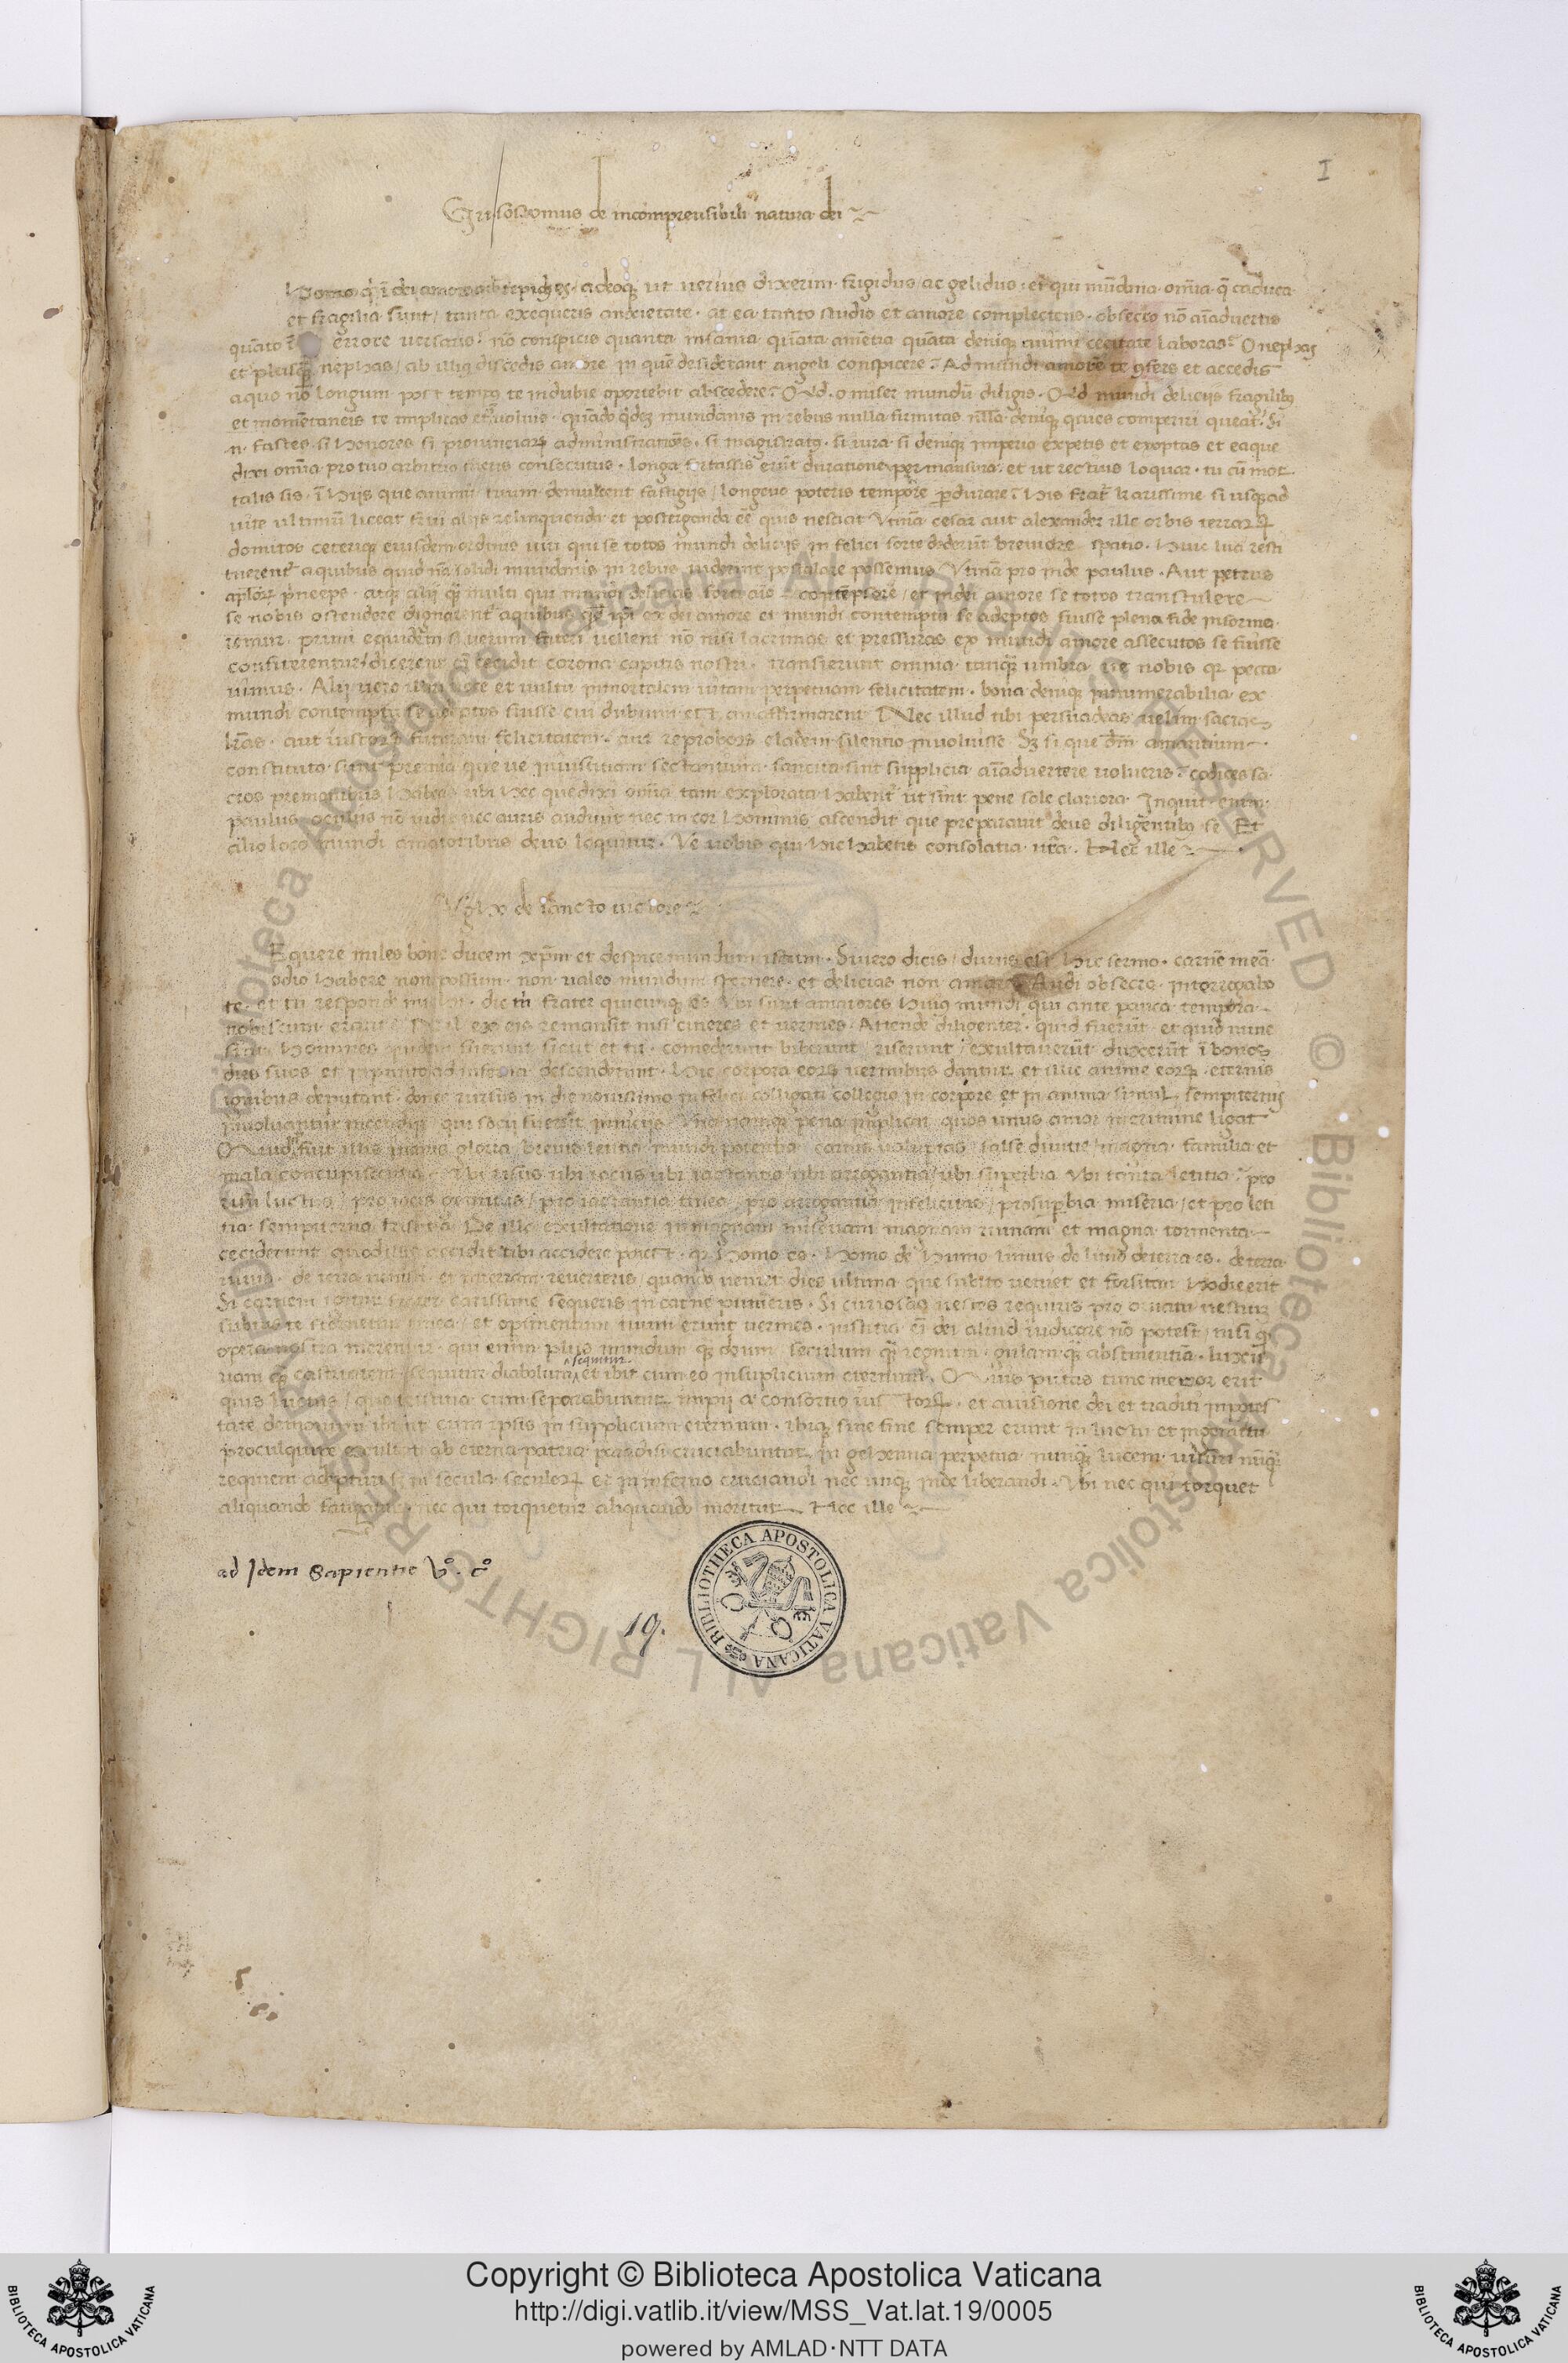 I
Grisostomus de incomprensibili natura dei
Homo adeoq ut verius dixerim frigidus ac gelidus et qui mũdana omĩa q̃ caduca
et fragilia sunt / tanta exequeris anxietate . at ea tanto studio et amore complecteris . obsecro nõ aĩadvertis
quãto ĩ errore versaris . nõ conspicis quanta insania quãta amẽtia quãta deniq animi cecitate laboras . O nephas
et nephas / ab illiq discedis amore in quẽ desiderant angeli conspicere . Ad mundi amorẽ te et accedis
a quo nõ longum post temp te indubie oportebit abscedere . Qd . o miser mundũ diligis . Qd mundi delicijs fragilibq
et momẽtaneis te implicas et volvis . quãdo mundanis in rebus nulla firmitas deniq qvies comperiri queat . Si
.n. fastes . si honores si provinciarq administratiões . si magistratq . si iura si deniq imperia expetis et exoptas et eaque
dixi omĩa pro tuo arbitrio fueris consecutus . longa fortassis erũt duratione permansura . et ut rectius loquar . tu cũ mor
talis sis . ĩ hijs que animũ tuum demulcent fastigijs / longevo poteris tempore pdurare . His frater karissime si usq ad
vite ultimũ liceat frui alijs relinquenda et postergenda eẽ quis nesciat Utinã cesar aut alexander ille orbis terrarq
domitor ceteriq eiusdem ordinis viri qui se totos mundi delicijs in felici sorte dederũt breviore spatio . huic luci resti
tuerent a quibus quid nã solidi mundanis in rebus viderint postulare possemus Utinã pro inde paulus . Aut petrus
aplorq pnceps . atq alij q̃ multi qui mundi delicias forti aĩo contẽpsere / et in dei amore se totos transtulere
se nobis ostendere dignarent a quibus ex dei amore et mundi contemptu se adeptos fuisse plena fide informa
remur . primi equidem si verum fateri vellent nõ nisi lacrimas et pressuras ex mundi amore assecutos se fuisse
confiterentur dicerent cecidit corona capitis nostri . transierunt omnia tanq umbra . ve nobis qr pecca
vimus . Alij vero et vultu immortalem vitam perpetuam felicitatem . bona deniq innumerabilia ex
mundi contemptu se adeptos fuisse cui dubium est affirmarent Nec illud tibi persuadeas velim sacras
lrãs . aut iustorq futuram felicitatem . aut reproborq cladem silentio involvisse . Sz si que amantium
constituta sunt premia que ve iniustitiam sectantium sancita sint supplicia aĩadvertere volueris . codices sa
cros pre manibus habeas ubi hec que dixi omĩa tam explorata habent ut sint pene sole clariora . Inquit enim
paulus oculus nõ vidit nec auris audivit nec in cor hominis ascendit que preparavit deus diligẽtibq se Et
alio loco mundi amatoribus deus loquitur . Ve vobis qui hic habetis consolatiã vrã . Hec ille
de sancto victore
Equere miles bone ducem xpm et despice mundum istum . Si vero dicis / durus est hic sermo . carnẽ meã
odio habere non possum . non valeo mundum spernere . et delicias non amare Audi obsecro . interrogabo
te . et tu responde michi . dic m frater quicunq es Ubi sunt amatores huiq mundi qui ante pauca tempora
nobiscum erant . Nil ex eis remansit nisi cineres et vermes . Attende diligenter . quid fuerũt et quid nunc
sint . homines quidem fuerunt sicut et tu . comederunt biberunt / riserunt / exultaverũt duxerũt ĩ bonos
dies suos et in puncto ad inferna descenderunt . Hic corpora eorq vermibus dantur et illic anime eorq . eternis
ignibus deputant . donec rursus in die novissimo infelici colligati collegio in corpore et in anima simul sempiternis
involvantur incendijs qui socij fuerũt in vicijs Una namq pena implicat quos unus amor in crimine ligat
Quid pfuit illis inanis gloria / brevis letitia mundi potentia carnis voluptas / false divitie / magna familia et
mala concupiscentia . Ubi risus ubi iocus ubi iactantia / ubi arrogantia / ubi superbia Ubi tanta letitia . pro
risu luctus / pro iocis gemitus / pro iactantia tinea / pro arrogantia infelicitas / pro superbia miseria / et pro leti
tia sempiterna tristitia De illa exultatione in magnam miseriam magnam ruinam et magna tormenta
ceciderunt quod illis accidit tibi accidere potest . qr homo es . homo de humo limus de limo de terra es . de terra
vivis . de terra venisti et in terram reverteris / quando veniet dies ultima que subito veniet et forsitan hodie erit
Si carnem igitur frater carissime sequeris in carne punieris . Si curiosas vestes requiris pro ornatu vestium
subter te sternetur tinea / et operimentum tuum erunt vermes . iustitia dei aliud iudicare nõ potest / nisi q
opera nostra merentur . qui enim plus mundum q deum / seculum q regnum . gulam q abstinentiã . luxu
riam q castitatem / sequitur diabolum et ibit cum eo in suplicium eternum . O quis putas tunc meror erit
sequitur
quis luctus / que tristitia cum separabuntur impij a consortio iustorq . et a visione dei et traditi in potes
tate demonum ibunt cum ipsis in supplicium eternum . ibiq sine fine semper erunt in luctu et in gemitu
procul quippe exclusi ab eterna patria paradisi cruciabuntur in gehenna perpetua nunq lucem visuri nũq
requiem adepturi / in secula seculorq et in inferno cruciandi nec unq inde liberandi . Ubi nec qui torquet
aliquando fatigatur / nec qui torquetur aliquando moritur Hec ille
ad Idem Sapientie Vº . cº
19.
BIBLIOTHECA APOSTOLICA VATICANA
Biblioteca Apostolica Vaticana ALL RIGHTS RESERVED ©
Copyright © Biblioteca Apostolica Vaticana
http://digi.vatlib.it/view/MSS_Vat.lat.19/0005
powered by AMLAD·NTT DATA
BIBLIOTECA APOSTOLICA VATICANA
BIBLIOTECA APOSTOLICA VATICANA